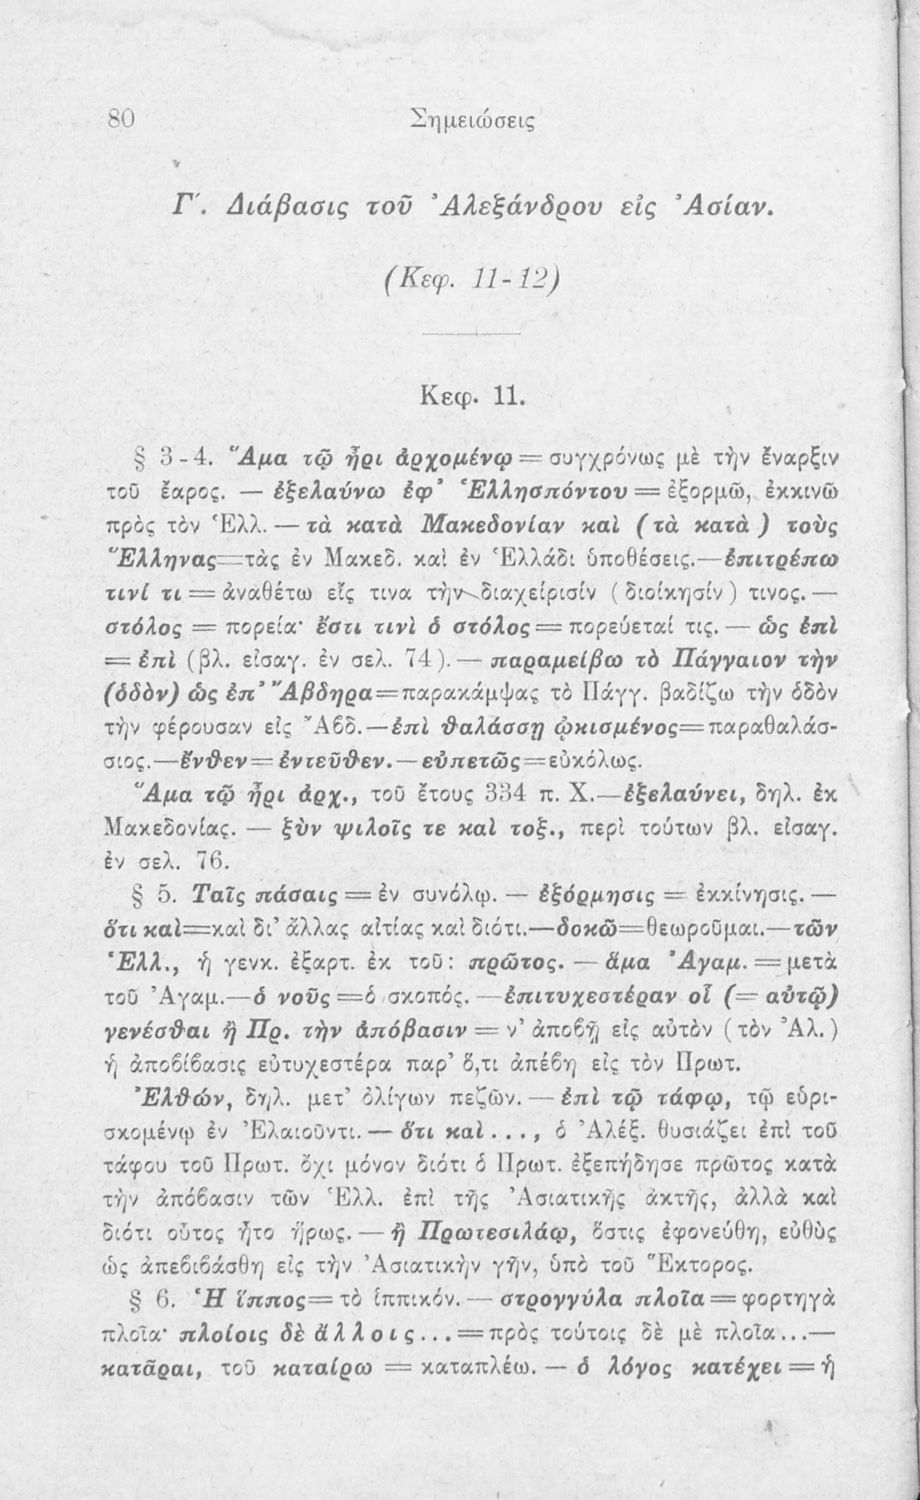 80 Σημειώσεις
Γ΄. Διάβασις τοῦ Ἀλεξάνδρου εἰς Ἀσίαν.
(Κεφ. 11-12)
Κεφ. 11.
§ 3-4. Ἅμα τῷ ἦρι ἀρχομένῳ = συγχρόνως μὲ τὴν ἔναρξιν
τοῦ ἔαρος. — ἐξελαύνω ἐφ' Ἑλλησπόντου = ἐξορμῶ, ἐκκινῶ
πρὸς τὸν Ἑλλ. — τὰ κατὰ Μακεδονίαν καὶ (τὰ κατὰ) τοὺς
Ἕλληνας=τὰς ἐν Μακεδ. καὶ ἐν Ἑλλάδι ὑποθέσεις.—ἐπιτρέπω
τινί τι = ἀναθέτω εἴς τινα τὴν διαχείρισίν (διοίκησίν) τινος.—
στόλος = πορεία· ἔστι τινὶ ὁ στόλος = πορεύεταί τις. — ὡς ἐπὶ
= ἐπὶ (βλ. εἰσαγ. ἐν σελ. 74). — παραμείβω τὸ Πάγγαιον τὴν
(ὁδὸν) ὡς ἐπ' Ἄβδηρα=παρακάμψας τὸ Πάγγ. βαδίζω τὴν ὁδὸν
τὴν φέρουσαν εἰς Ἄβδ.—ἐπὶ θαλάσσῃ ᾠκισμένος=παραθαλάσ-
σιος.—ἔνθεν = ἐντεῦθεν.—εὐπετῶς=εὐκόλως.
Ἅμα τῷ ἦρι ἀρχ., τοῦ ἔτους 334 π. Χ.—ἐξελαύνει, δηλ. ἐκ
Μακεδονίας. — ξὺν ψιλοῖς τε καὶ τοξ., περὶ τούτων βλ. εἰσαγ.
ἐν σελ. 76.
§ 5. Ταῖς πάσαις = ἐν συνόλῳ. — ἐξόρμησις = ἐκκίνησις. —
ὅτι καὶ=καὶ δι' ἄλλας αἰτίας καὶ διότι.—δοκῶ=θεωροῦμαι.—τῶν
Ἑλλ., ἡ γενκ. ἐξαρτ. ἐκ τοῦ: πρῶτος. — ἅμα Ἀγαμ. = μετὰ
τοῦ Ἀγαμ.—ὁ νοῦς =ὁ σκοπός. —ἐπιτυχεστέραν οἷ (= αὐτῷ)
γενέσθαι ἢ Πρ. τὴν ἀπόβασιν = ν' ἀποβῇ εἰς αὐτὸν (τὸν Ἀλ.)
ἡ ἀποβίβασις εὐτυχεστέρα παρ' ὅ,τι ἀπέβη εἰς τὸν Πρωτ.
Ἐλθών, δηλ. μετ' ὀλίγων πεζῶν. — ἐπὶ τῷ τάφῳ, τῷ εὑρι-
σκομένῳ ἐν Ἐλαιοῦντι. — ὅτι καὶ..., ὁ Ἀλέξ. θυσιάζει ἐπὶ τοῦ
τάφου τοῦ Πρωτ. ὄχι μόνον διότι ὁ Πρωτ. ἐξεπήδησε πρῶτος κατὰ
τὴν ἀπόβασιν τῶν Ἑλλ. ἐπὶ τῆς Ἀσιατικῆς ἀκτῆς, ἀλλὰ καὶ
διότι οὗτος ἦτο ἥρως. — ἢ Πρωτεσιλάῳ, ὅστις ἐφονεύθη, εὐθὺς
ὡς ἀπεβιβάσθη εἰς τὴν Ἀσιατικὴν γῆν, ὑπὸ τοῦ Ἕκτορος.
§ 6. Ἡ ἵππος= τὸ ἱππικόν. — στρογγύλα πλοῖα = φορτηγὰ
πλοῖα· πλοίοις δὲ ἄλλοις... = πρὸς τούτοις δὲ μὲ πλοῖα...—
κατᾶραι, τοῦ καταίρω = καταπλέω. — ὁ λόγος κατέχει = ἡ